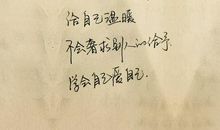 给自己温暖
不会奢求别人的给予
学会自己爱自己.